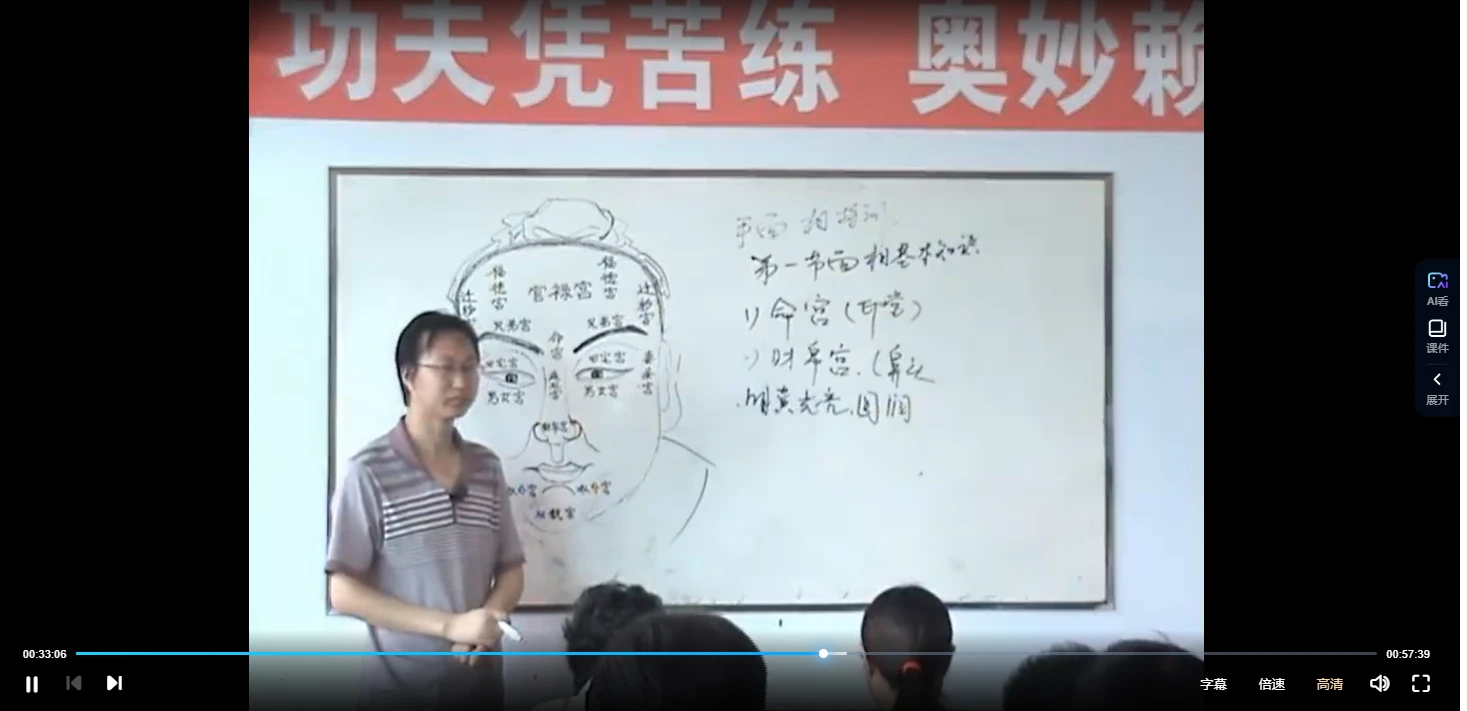 功夫凭苦练 奥妙赖
面相培训
第一节面相基本知识
1) 命宫(印堂)
财帛宫.(鼻头
明黄光亮、圆润
福德宫
福德宫
官禄宫
迁移宫
迁移宫
兄弟宫
兄弟宫
命宫
田宅宫
田宅宫
妻妾宫
疾厄宫
男女宫
男女宫
财帛宫
奴仆宫
奴仆宫
相貌宫
AI看
课件
展开
00:33:06
00:57:39
字幕
倍速
高清